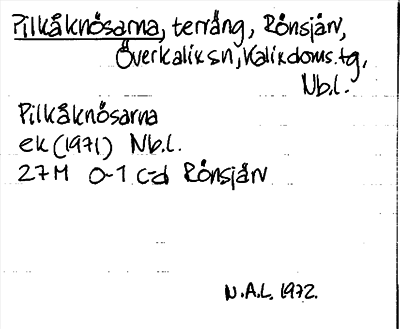 Pilkåknösarna, terräng, Rönsjärv,
Överkalix sn, Kalix doms.tg,
Nb.l.
Pilkåknösarna
ek (1971) Nb.l.
27M 0-1 c-d Rönsjärv
N.A.L. 1972.